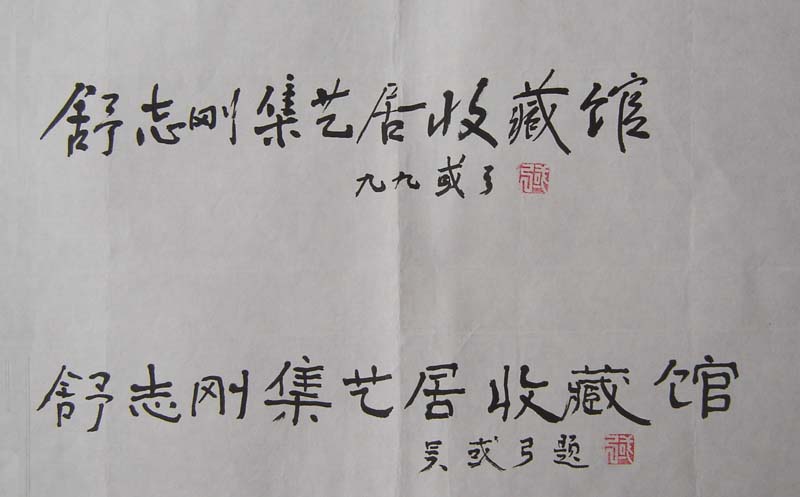 舒志刚集艺居收藏馆
九九或弓
舒志刚集艺居收藏馆
吴或弓题